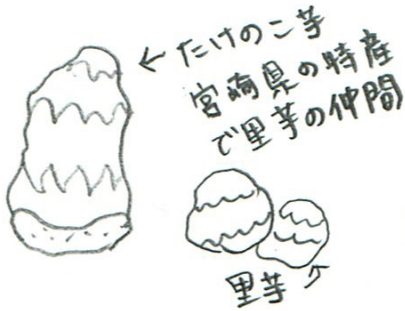 ←たけのこ芋
宮崎県の特産
で里芋の仲間
里芋